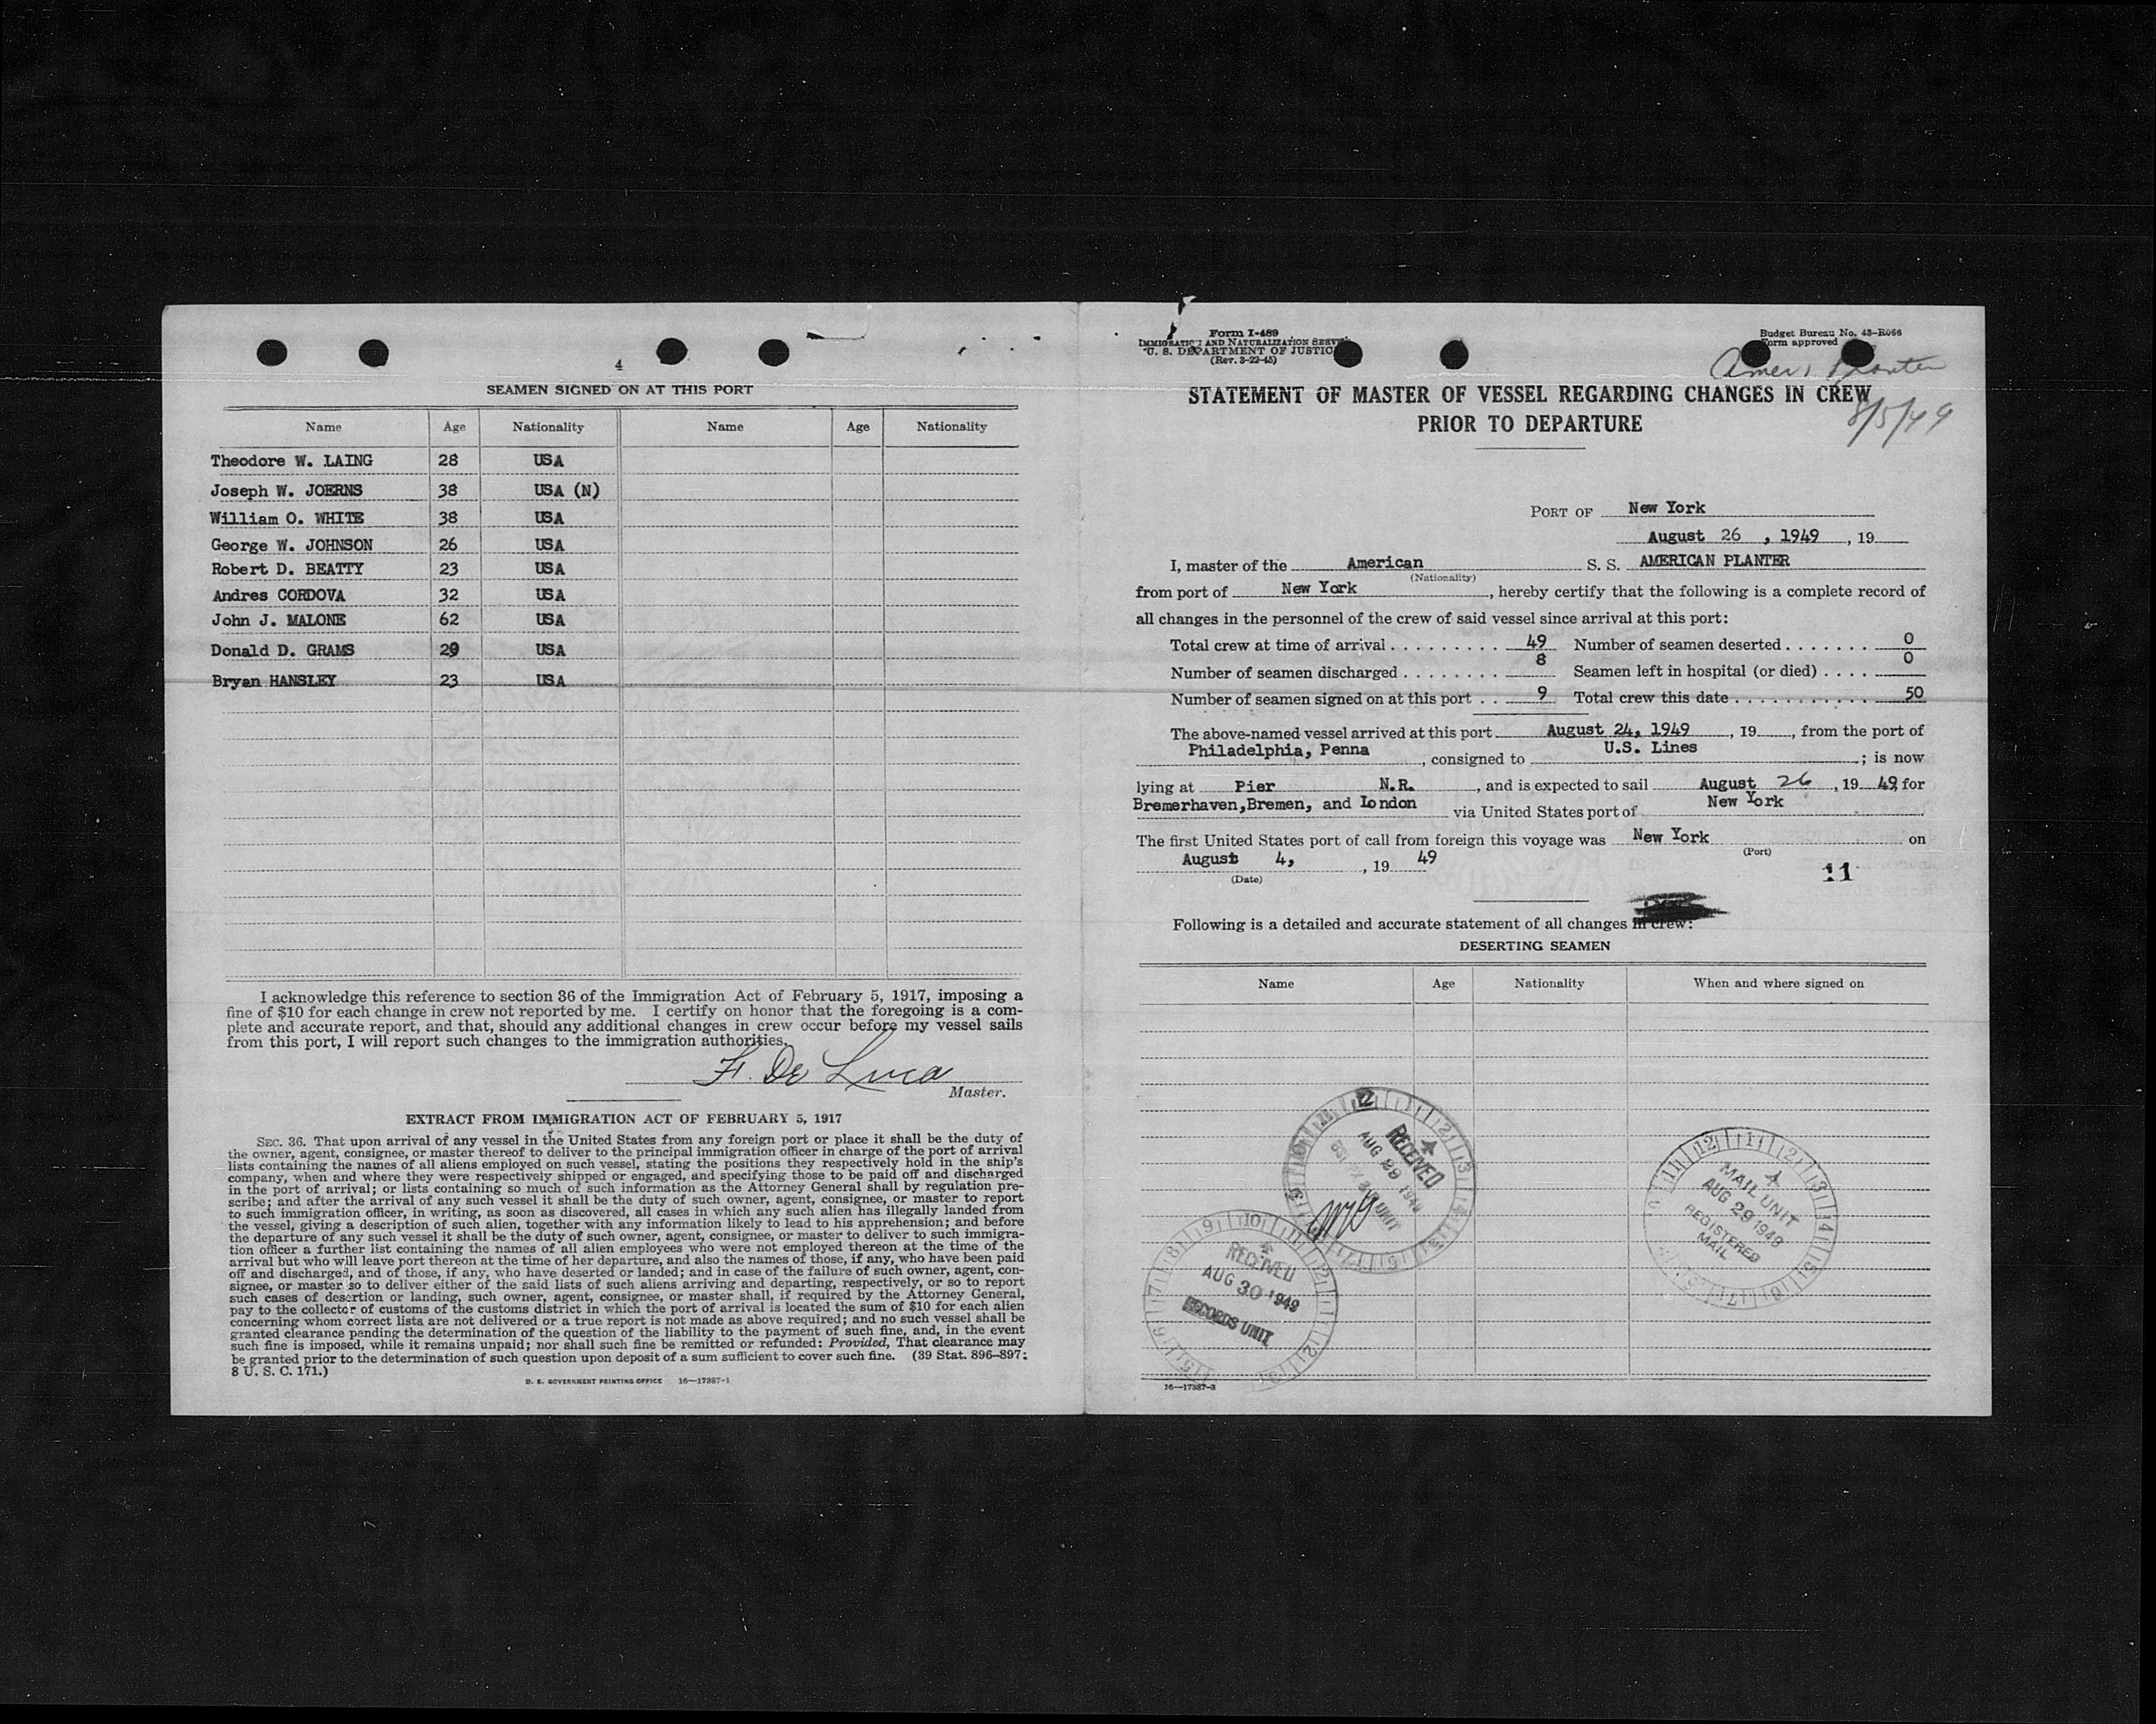 4
SEAMEN SIGNED ON AT THIS PORT
Name Age Nationality Name Age Nationality
Theodore W. LAING 28 USA
Joseph W. JOERNS 38 USA (N)
William O. WHITE 38 USA
George W. JOHNSON 26 USA
Robert D. BEATTY 23 USA
Andres CORDOVA 32 USA
John J. MALONE 62 USA
Donald D. GRAMS 29 USA
Bryan HANSLEY 23 USA
I acknowledge this reference to section 36 of the Immigration Act of February 5, 1917, imposing a
fine of $10 for each change in crew not reported by me. I certify on honor that the foregoing is a com-
plete and accurate report, and that, should any additional changes in crew occur before my vessel sails
from this port, I will report such changes to the immigration authorities.
F. De Luca
Master.
EXTRACT FROM IMMIGRATION ACT OF FEBRUARY 5, 1917
SEC. 36. That upon arrival of any vessel in the United States from any foreign port or place it shall be the duty of
the owner, agent, consignee, or master thereof to deliver to the principal immigration officer in charge of the port of arrival
lists containing the names of all aliens employed on such vessel, stating the positions they respectively hold in the ship's
company, when and where they were respectively shipped or engaged, and specifying those to be paid off and discharged
in the port of arrival; or lists containing so much of such information as the Attorney General shall by regulation pre-
scribe; and after the arrival of any such vessel it shall be the duty of such owner, agent, consignee, or master to report
to such immigration officer, in writing, as soon as discovered, all cases in which any such alien has illegally landed from
the vessel, giving a description of such alien, together with any information likely to lead to his apprehension; and before
the departure of any such vessel it shall be the duty of such owner, agent, consignee, or master to deliver to such immigra-
tion officer a further list containing the names of all alien employees who were not employed thereon at the time of the
arrival but who will leave port thereon at the time of her departure, and also the names of those, if any, who have been paid
off and discharged, and of those, if any, who have deserted or landed; and in case of the failure of such owner, agent, con-
signee, or master so to deliver either of the said lists of such aliens arriving and departing, respectively, or so to report
such cases of desertion or landing, such owner, agent, consignee, or master shall, if required by the Attorney General,
pay to the collector of customs of the customs district in which the port of arrival is located the sum of $10 for each alien
concerning whom correct lists are not delivered or a true report is not made as above required; and no such vessel shall be
granted clearance pending the determination of the question of the liability to the payment of such fine, and, in the event
such fine is imposed, while it remains unpaid; nor shall such fine be remitted or refunded: Provided, That clearance may
be granted prior to the determination of such question upon deposit of a sum sufficient to cover such fine. (39 Stat. 896–897;
8 U. S. C. 171.)
U. S. GOVERNMENT PRINTING OFFICE 16—17387-1
Form I-489
IMMIGRATION AND NATURALIZATION SERVICE
U. S. DEPARTMENT OF JUSTICE
(Rev. 3-22-45)
Budget Bureau No. 43-R066
Form approved
Amer. Planter
STATEMENT OF MASTER OF VESSEL REGARDING CHANGES IN CREW
PRIOR TO DEPARTURE
8/5/49
PORT OF New York
August 26 , 1949 , 19
I, master of the American S. S. AMERICAN PLANTER
(Nationality)
from port of New York , hereby certify that the following is a complete record of
all changes in the personnel of the crew of said vessel since arrival at this port:
Total crew at time of arrival . . . . . . . . . 49 Number of seamen deserted . . . . . . . 0
Number of seamen discharged . . . . . . . . 8 Seamen left in hospital (or died) . . . . 0
Number of seamen signed on at this port . . 9 Total crew this date . . . . . . . . . . . . 50
The above-named vessel arrived at this port August 24, 1949 , 19 , from the port of
Philadelphia, Penna , consigned to U.S. Lines ; is now
lying at Pier N.R. , and is expected to sail August 26 , 19 49, for
Bremerhaven, Bremen, and London via United States port of New York
The first United States port of call from foreign this voyage was New York on
(Port)
August 4, , 19 49
(Date)
11
Following is a detailed and accurate statement of all changes in crew:
DESERTING SEAMEN
Name Age Nationality When and where signed on
RECEIVED
AUG 29 1949
UNIT
RECEIVED
AUG 30 1949
RECORDS UNIT
MAIL UNIT
AUG 29 1949
REGISTERED
MAIL
16—17387-3